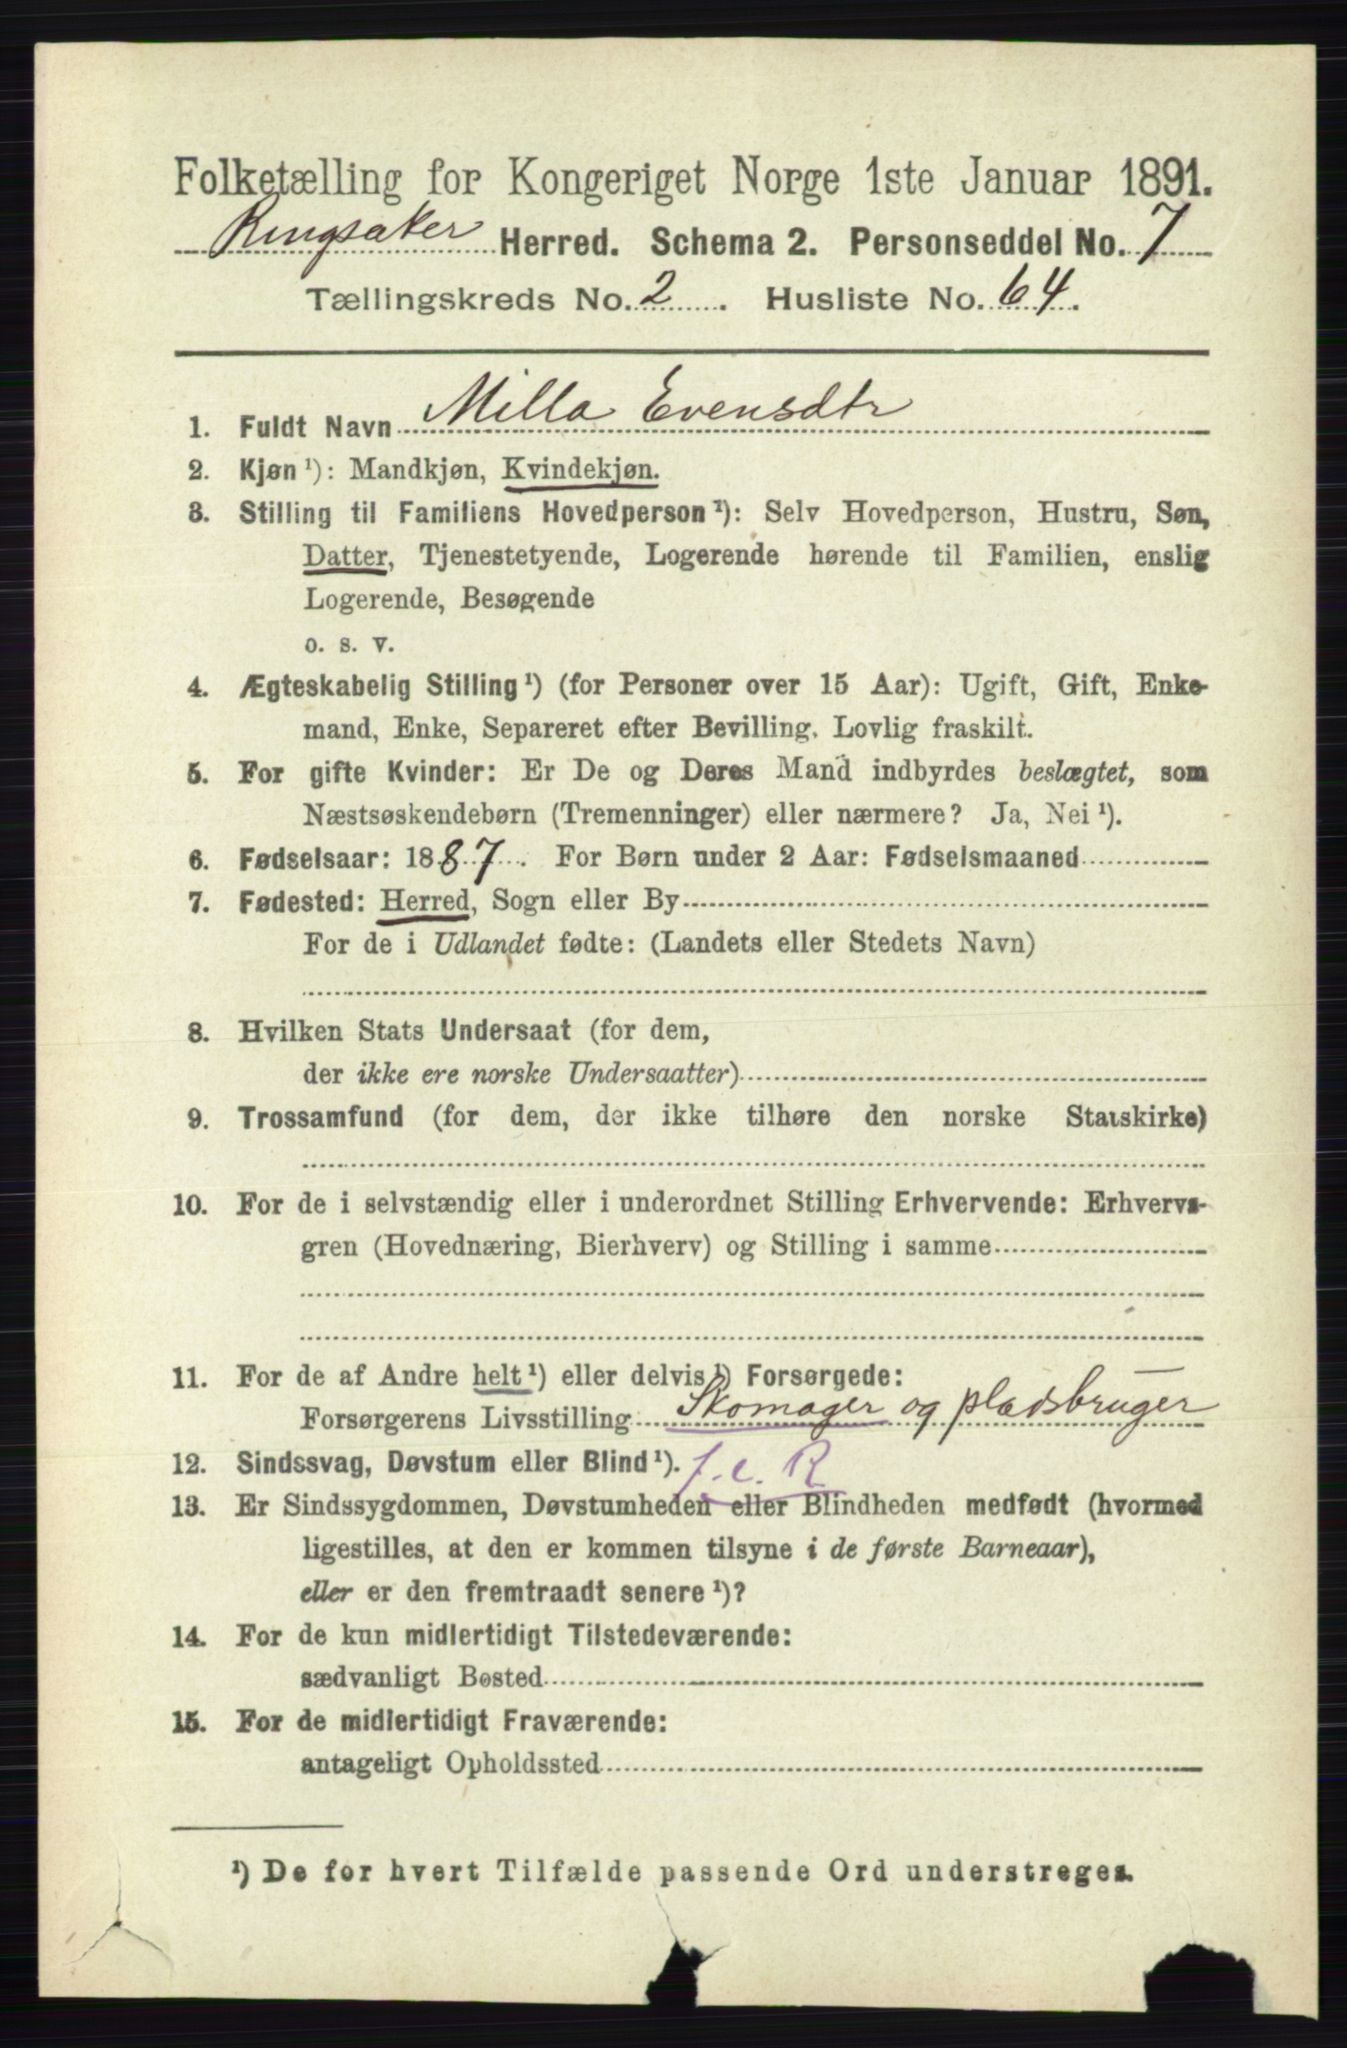 Folketælling for Kongeriget Norge 1ste Januar 1891.
Ringsaker Herred. Schema 2. Personseddel No. 7
Tællingskreds No. 2. Husliste No. 64.
1. Fuldt Navn Milla Evensdtr
2. Kjøn¹): Mandkjøn, Kvindekjøn.
3. Stilling til Familiens Hovedperson¹): Selv Hovedperson, Hustru, Søn,
Datter, Tjenestetyende, Logerende hørende til Familien, enslig
Logerende, Besøgende
o. s. v.
4. Ægteskabelig Stilling¹) (for Personer over 15 Aar): Ugift, Gift, Enke-
mand, Enke, Separeret efter Bevilling. Lovlig fraskilt.
5. For gifte Kvinder: Er De og Deres Mand indbyrdes beslægtet, som
Næstsøskendebørn (Tremenninger) eller nærmere? Ja, Nei¹).
6. Fødselsaar: 1887. For Børn under 2 Aar: Fødselsmaaned
7. Fødested: Herred, Sogn eller By
For de i Udlandet fødte: (Landets eller Stedets Navn)
8. Hvilken Stats Undersaat (for dem,
der ikke ere norske Undersaatter)
9. Trossamfund (for dem, der ikke tilhøre den norske Statskirke)
10. For de i selvstændig eller i underordnet Stilling Erhvervende: Erhvervs-
gren (Hovednæring, Bierhverv) og Stilling i samme
11. For de af Andre helt¹) eller delvis¹) Forsørgede:
Forsørgerens Livsstilling Skomager og pladsbruger
12. Sindssvag, Døvstum eller Blind¹). f. c. R
13. Er Sindssygdommen, Døvstumheden eller Blindheden medfødt (hvormed
ligestilles, at den er kommen tilsyne i de første Barneaar),
eller er den fremtraadt senere¹)?
14. For de kun midlertidigt Tilstedeværende:
sædvanligt Bosted
15. For de midlertidigt Fraværende:
antageligt Opholdssted
¹) De for hvert Tilfælde passende Ord understreges.